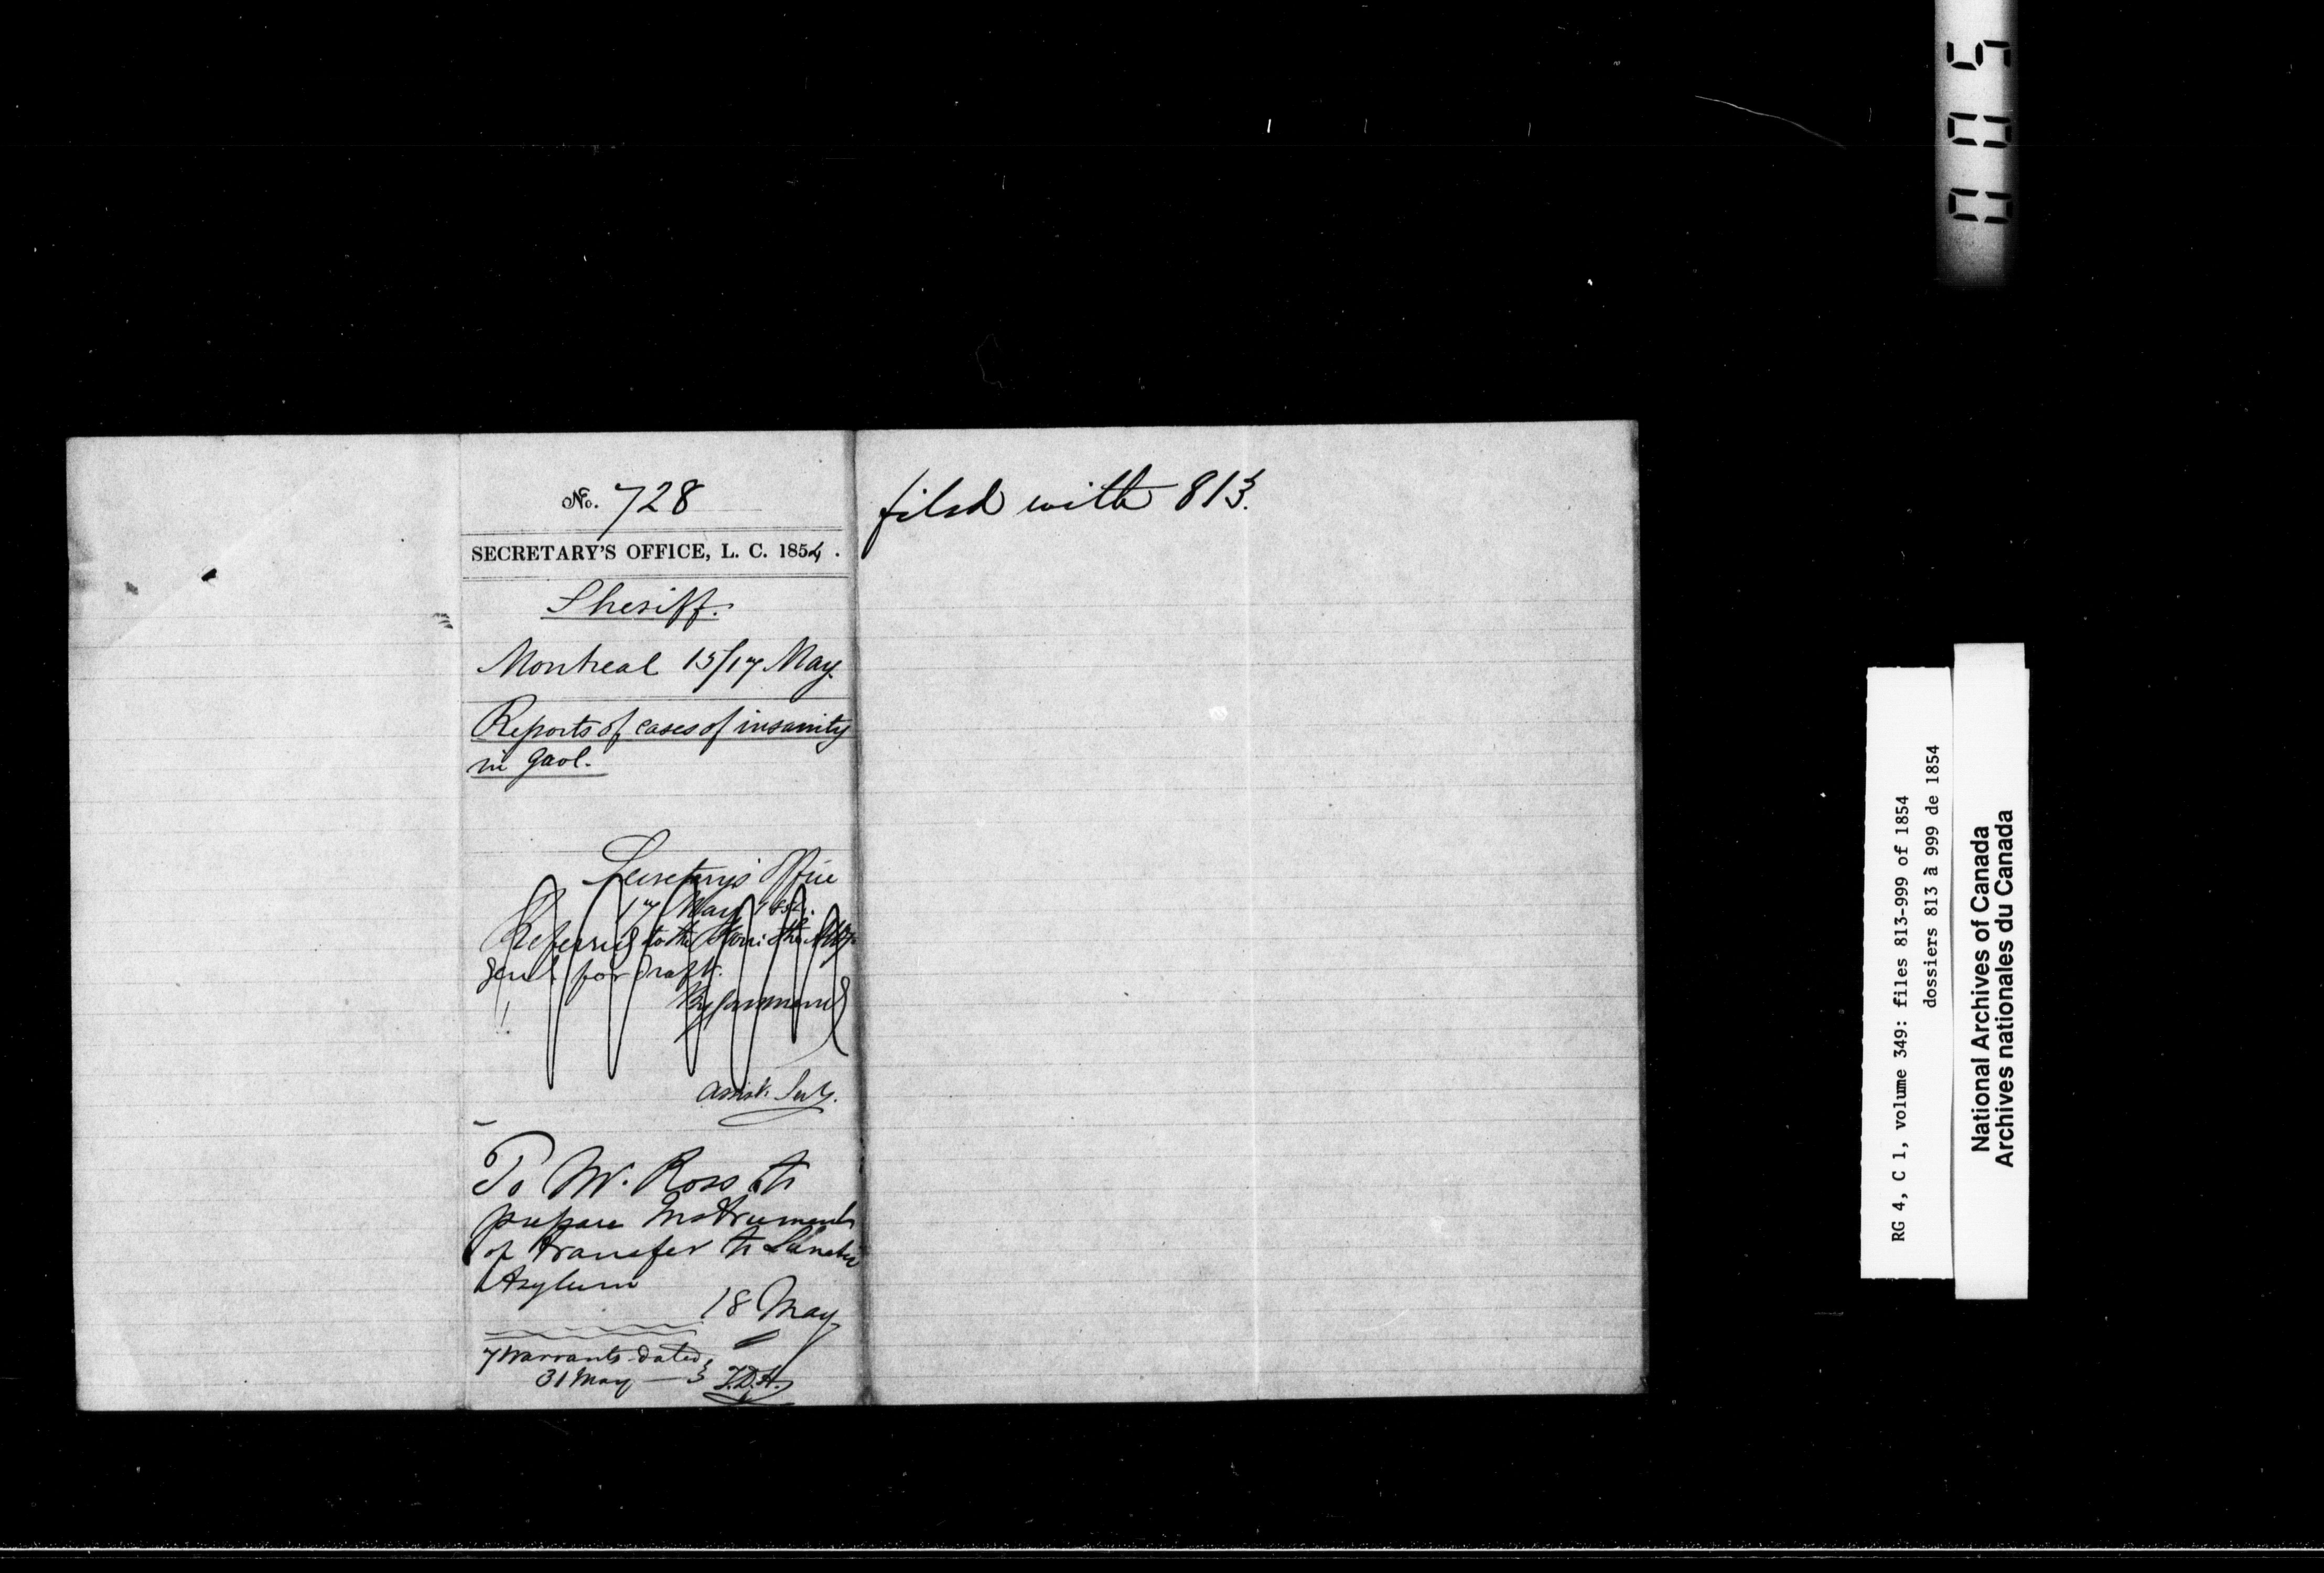 No. 728
SECRETARY'S OFFICE, L. C. 1854.
Sheriff.
Montreal 15/17 May.
Reports of cases of insanity
in gaol.
Secretary's Office
17 May 1854.
Referred to the Hon: the Atty
Genl for draft.
By Command
Assist. Secy.
To W. Ross to
prepare Instruments
of transfer to Lunatic
Asylum
18 May
7 Warrants dated
31 May
T.D.H.
filed with 813.
005
RG 4, C 1, volume 349: files 813-999 of 1854
dossiers 813 à 999 de 1854
National Archives of Canada
Archives nationales du Canada